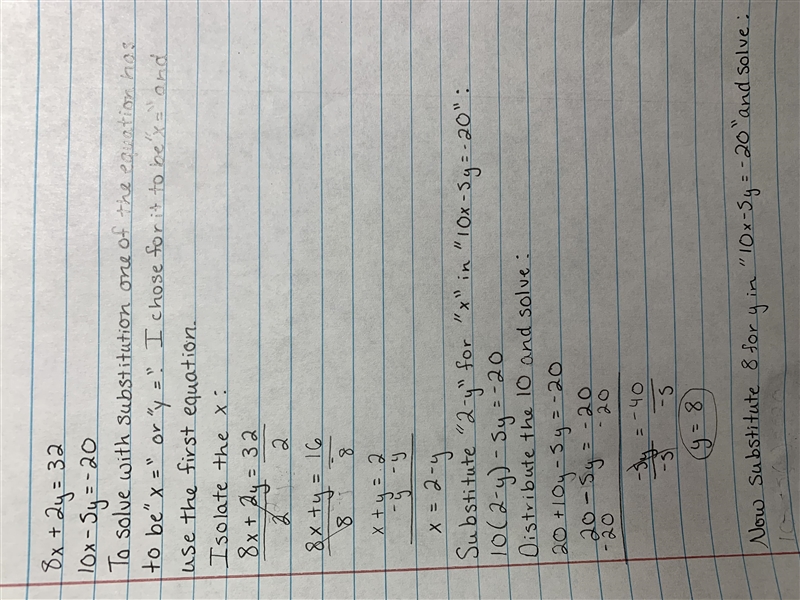 8x + 2y = 32
10x - 5y = -20
To solve with substitution one of the equation has
to be "x =" or "y =". I chose for it to be "x =" and
use the first equation.
Isolate the x:
8x + 2y = 32
2 2
8x + y = 16
8 8
x + y = 2
-y -y
x = 2 - y
Substitute "2-y" for "x" in "10x - 5y = -20":
10(2-y) - 5y = -20
Distribute the 10 and solve:
20 + 10y - 5y = -20
20 - 5y = -20
-20 -20
-5y = -40
-5 -5
y = 8
Now substitute 8 for y in "10x - 5y = -20" and solve: